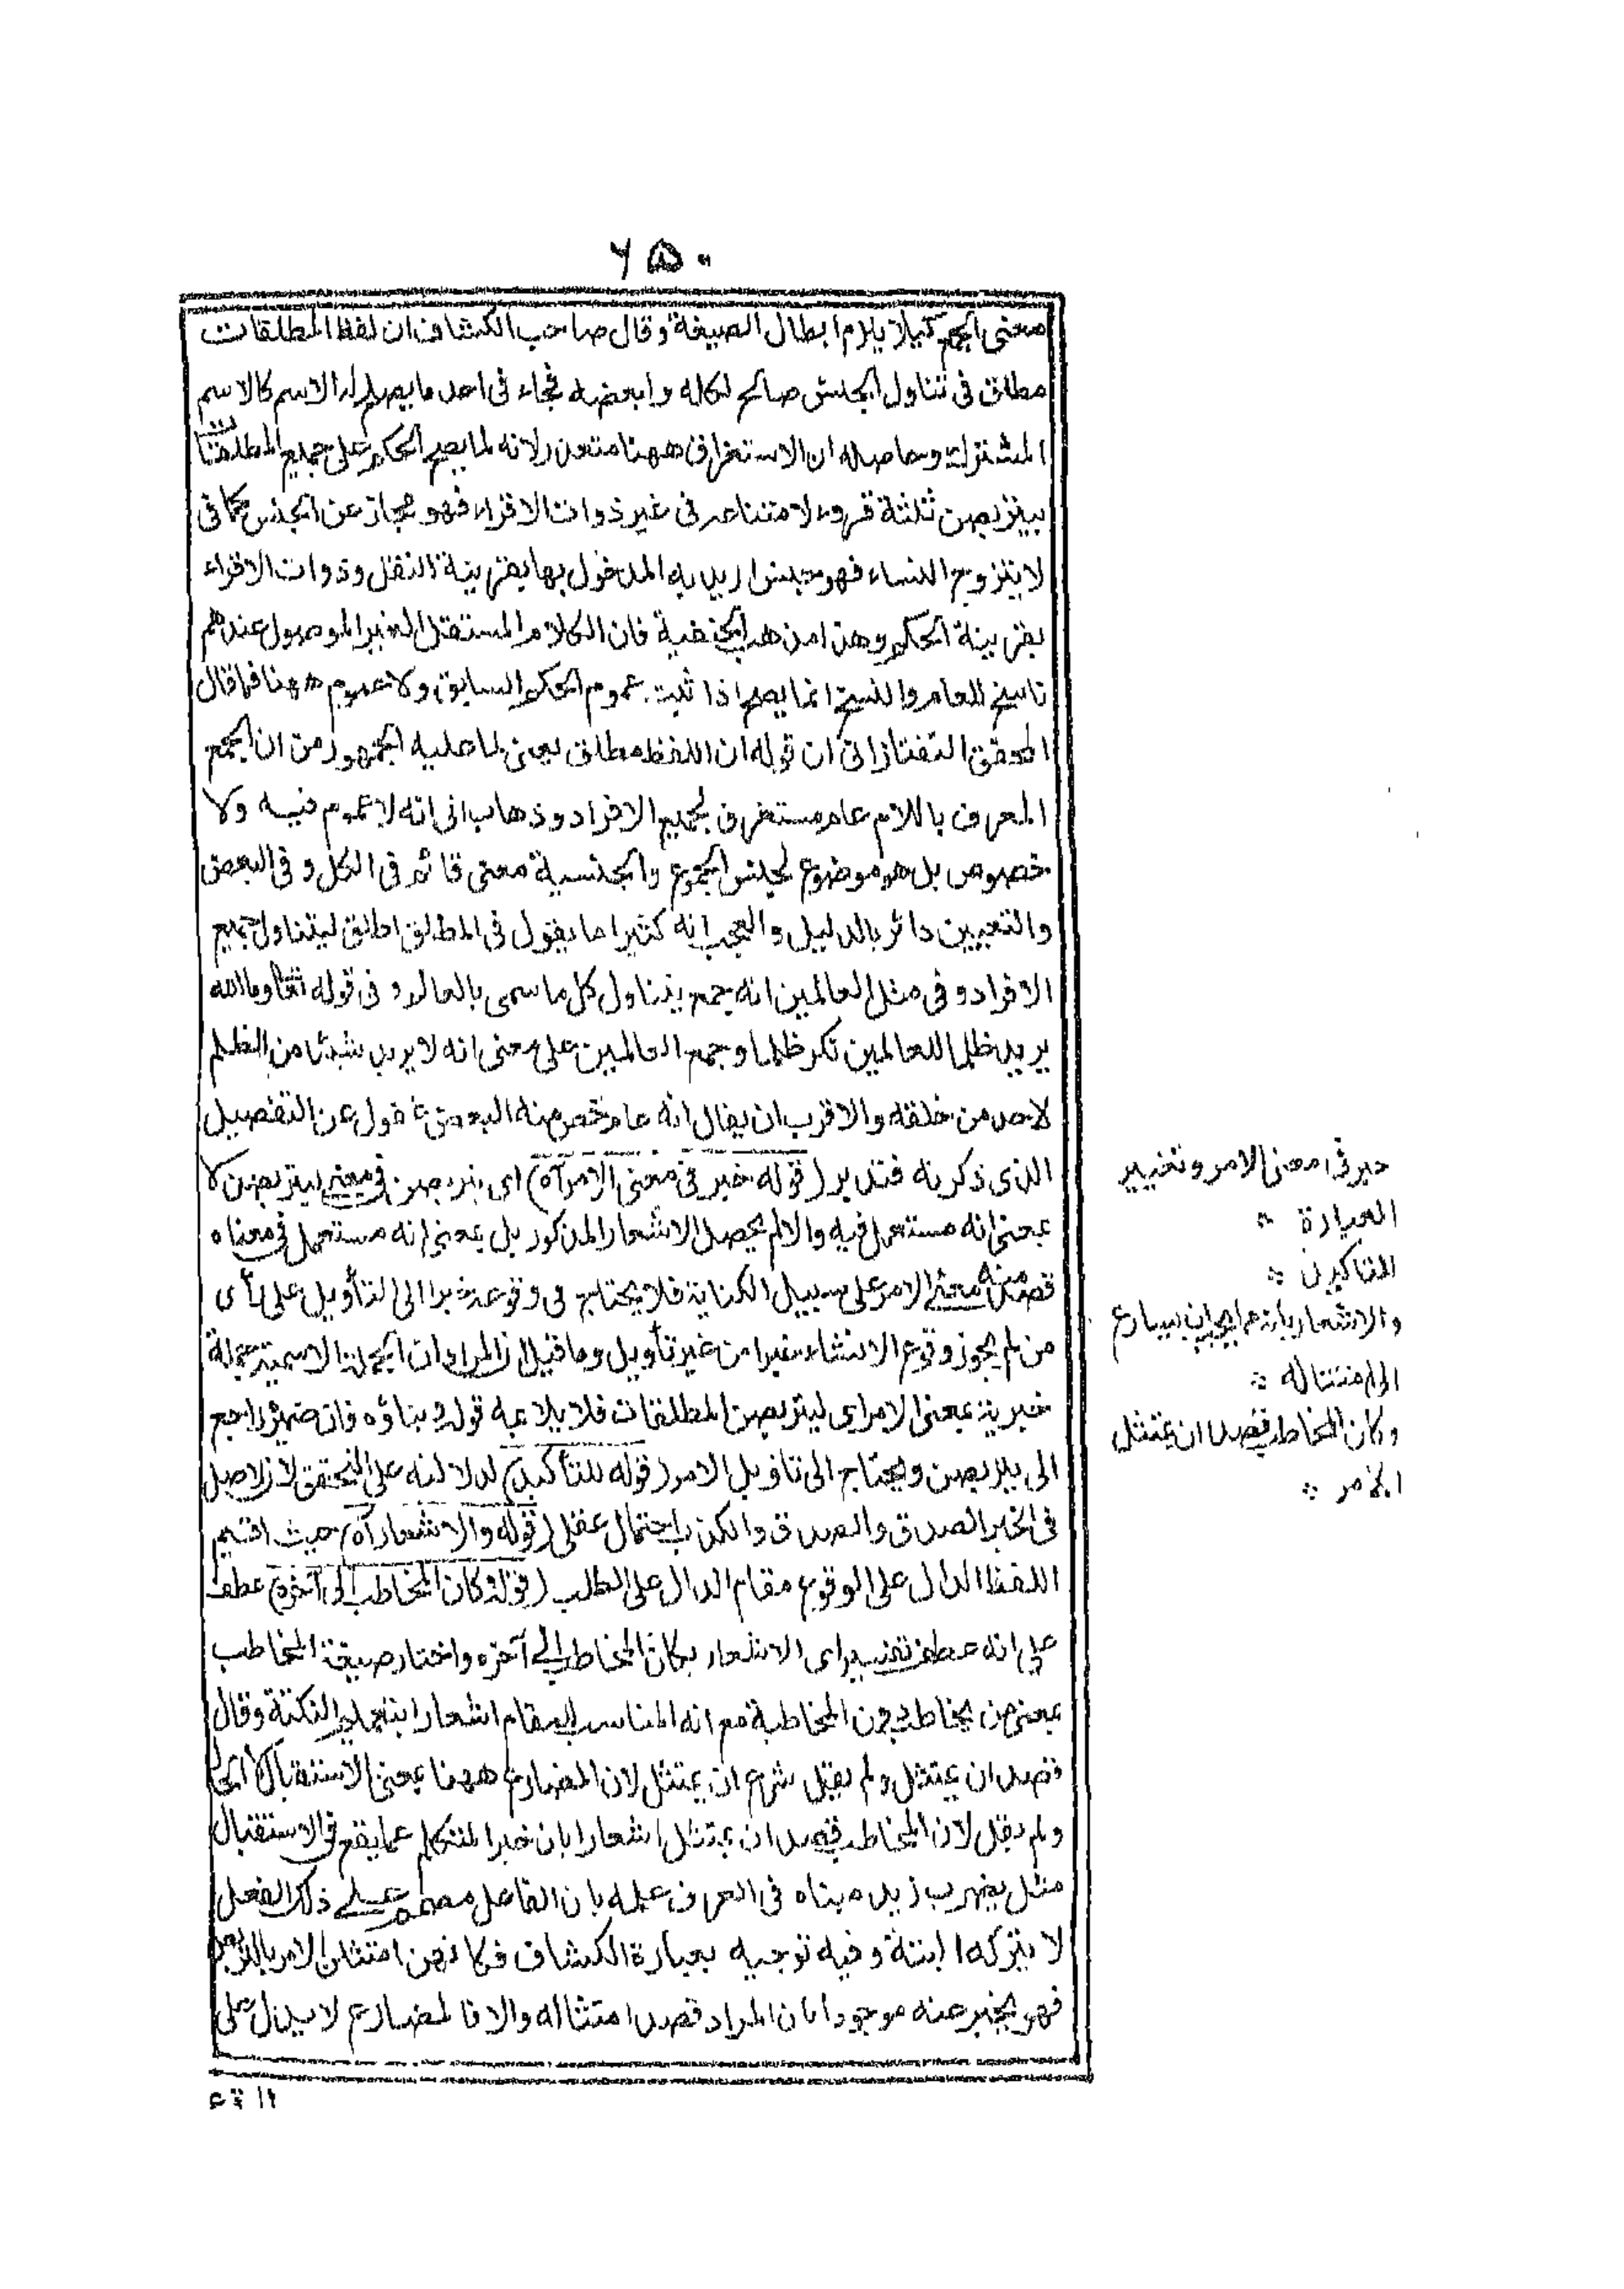 ۶۵۰
معنى الجمع كيلا يلزم ابطال الصيغة وقال صاحب الكشاف ان لفظ المطلقات
مطلق فى تناول الجنس صالح لكله وابعضه فجاء فى احد ما يصلح له الاسم كالاسم
المشترك وحاصله ان الاستغراق ههنا متعذر لانه لما يصح الحكم على جميع المطلقات
بيتربصن ثلثة قروء لا متناعه فى غير ذوات الاقراء فهو مجاز عن الجنس كما فى
لا يتزوج النساء فهو جنس اريد به المدخول بها بقرينة النقل وذوات الاقراء
بقرينة الحكم وهذا مذهب الحنفية فان الكلام المستقل الغير الموصول عندهم
ناسخ للعام والنسخ انما يصح اذا ثبت عموم الحكم السابق ولا عموم ههنا فما قال
المحقق التفتازانى ان قوله ان اللفظ مطلق يعنى لما عليه الجمهور من ان الجمع
المعرف باللام عام مستغرق لجميع الافراد وذهاب الى انه لا عموم فيه ولا
خصوص بل هو موضوع لجنس الجموع والجنسية معنى قائم فى الكل وفى البعض
والتعيين دائر بالدليل والعجب انه كثيرا ما يقول فى المطلق اطلق ليتناول جميع
الافراد وفى مثل العالمين انه جمع يتناول كل ما سمى بالعالم وفى قوله تعا وما الله
يريد ظلما للعالمين نكر ظلما وجمع العالمين على معنى انه لا يريد شيئا من الظلم
لاحد من خلقه والاقرب ان يقال انه عام خص منه البعض غفول عن التفصيل
الذى ذكرنه فتدبر (قوله خبر فى معنى الامر آه) اى يتربصن فى معنى ليتربصن لا
بمعنى انه مستعمل فيه والا لم يحصل الاشعار المذكور بل بمعنى انه مستعمل فى معناه
قصد منه معنى الامر على سبيل الكناية فلا يحتاج فى وقوعه خبرا الى التأويل على رأى
من لم يجوز وقوع الانشاء خبرا من غير تأويل وما قيل ان المراد ان الجملة الاسمية جملة
خبرية بمعنى الامر اى ليتربصن المطلقات فلا يلائمه قوله وبناؤه فان ضميره راجع
الى يتربصن ويحتاج الى تاويل الامر (قوله للتأكيد) لدلالته على التحقق لان الاصل
فى الخبر الصدق والصدق والكذب احتمال عقلى (قوله والاشعار آه) حيث اقيم
اللفظ الدال على الوقوع مقام الدال على الطلب (قوله وكان المخاطب الى آخره) عطف
على انه عطف تفسير اى الاشعار بكان المخاطب الى آخره واختار صيغة المخاطب
بمعنى من يخاطب دون المخاطبة مع انه المناسب للمقام اشعارا بتعميم النكتة وقال
قصد ان يمتثل ولم يقل شرع ان يمتثل لان المضارع ههنا بمعنى الاستقبال لا الحال
ولم يقل لان المخاطب قصد ان يمتثل اشعارا بان خبر المتكلم عما يقع فى الاستقبال
مثل يضرب زيد مبناه فى العرف علمه بان الفاعل مصمم على ذلك الفعل
لا يتركه البتة وفيه توجيه بعبارة الكشاف فكانهن امتثلن الامر بالتربص
فهو يخبر عنه موجودا بان المراد قصد امتثاله والا فالمضارع لا يدل على
خبر فى معنى الامر وتغيير
العبارة
للتاكيد
والاشعار بانه مما يجب ان يسارع
الى امتثاله
وكان المخاطب قصد ان يمتثل
الامر